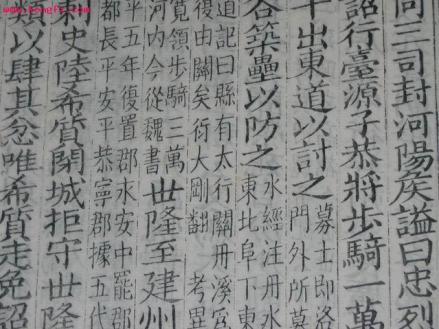 同三司封河陽矦謚曰忠烈
詔行臺源子恭將步騎一萬
出東道以討之
募士即洛
門外所募
各築壘以防之
水經注丹水
東北阜下東
道記曰縣有太行關丹溪宮
復由關矣衍大剛翻 考異
覽領步騎三萬
河内今從魏書
世隆至建州
平五年復置郡永安中罷郡
都長平安平恭寧郡據五代
史陸希質閉城拒守世隆
以肆其忿唯希質走免詔